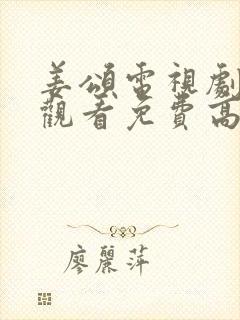 姜頌電視劇
觀看免費高
廖麗萍